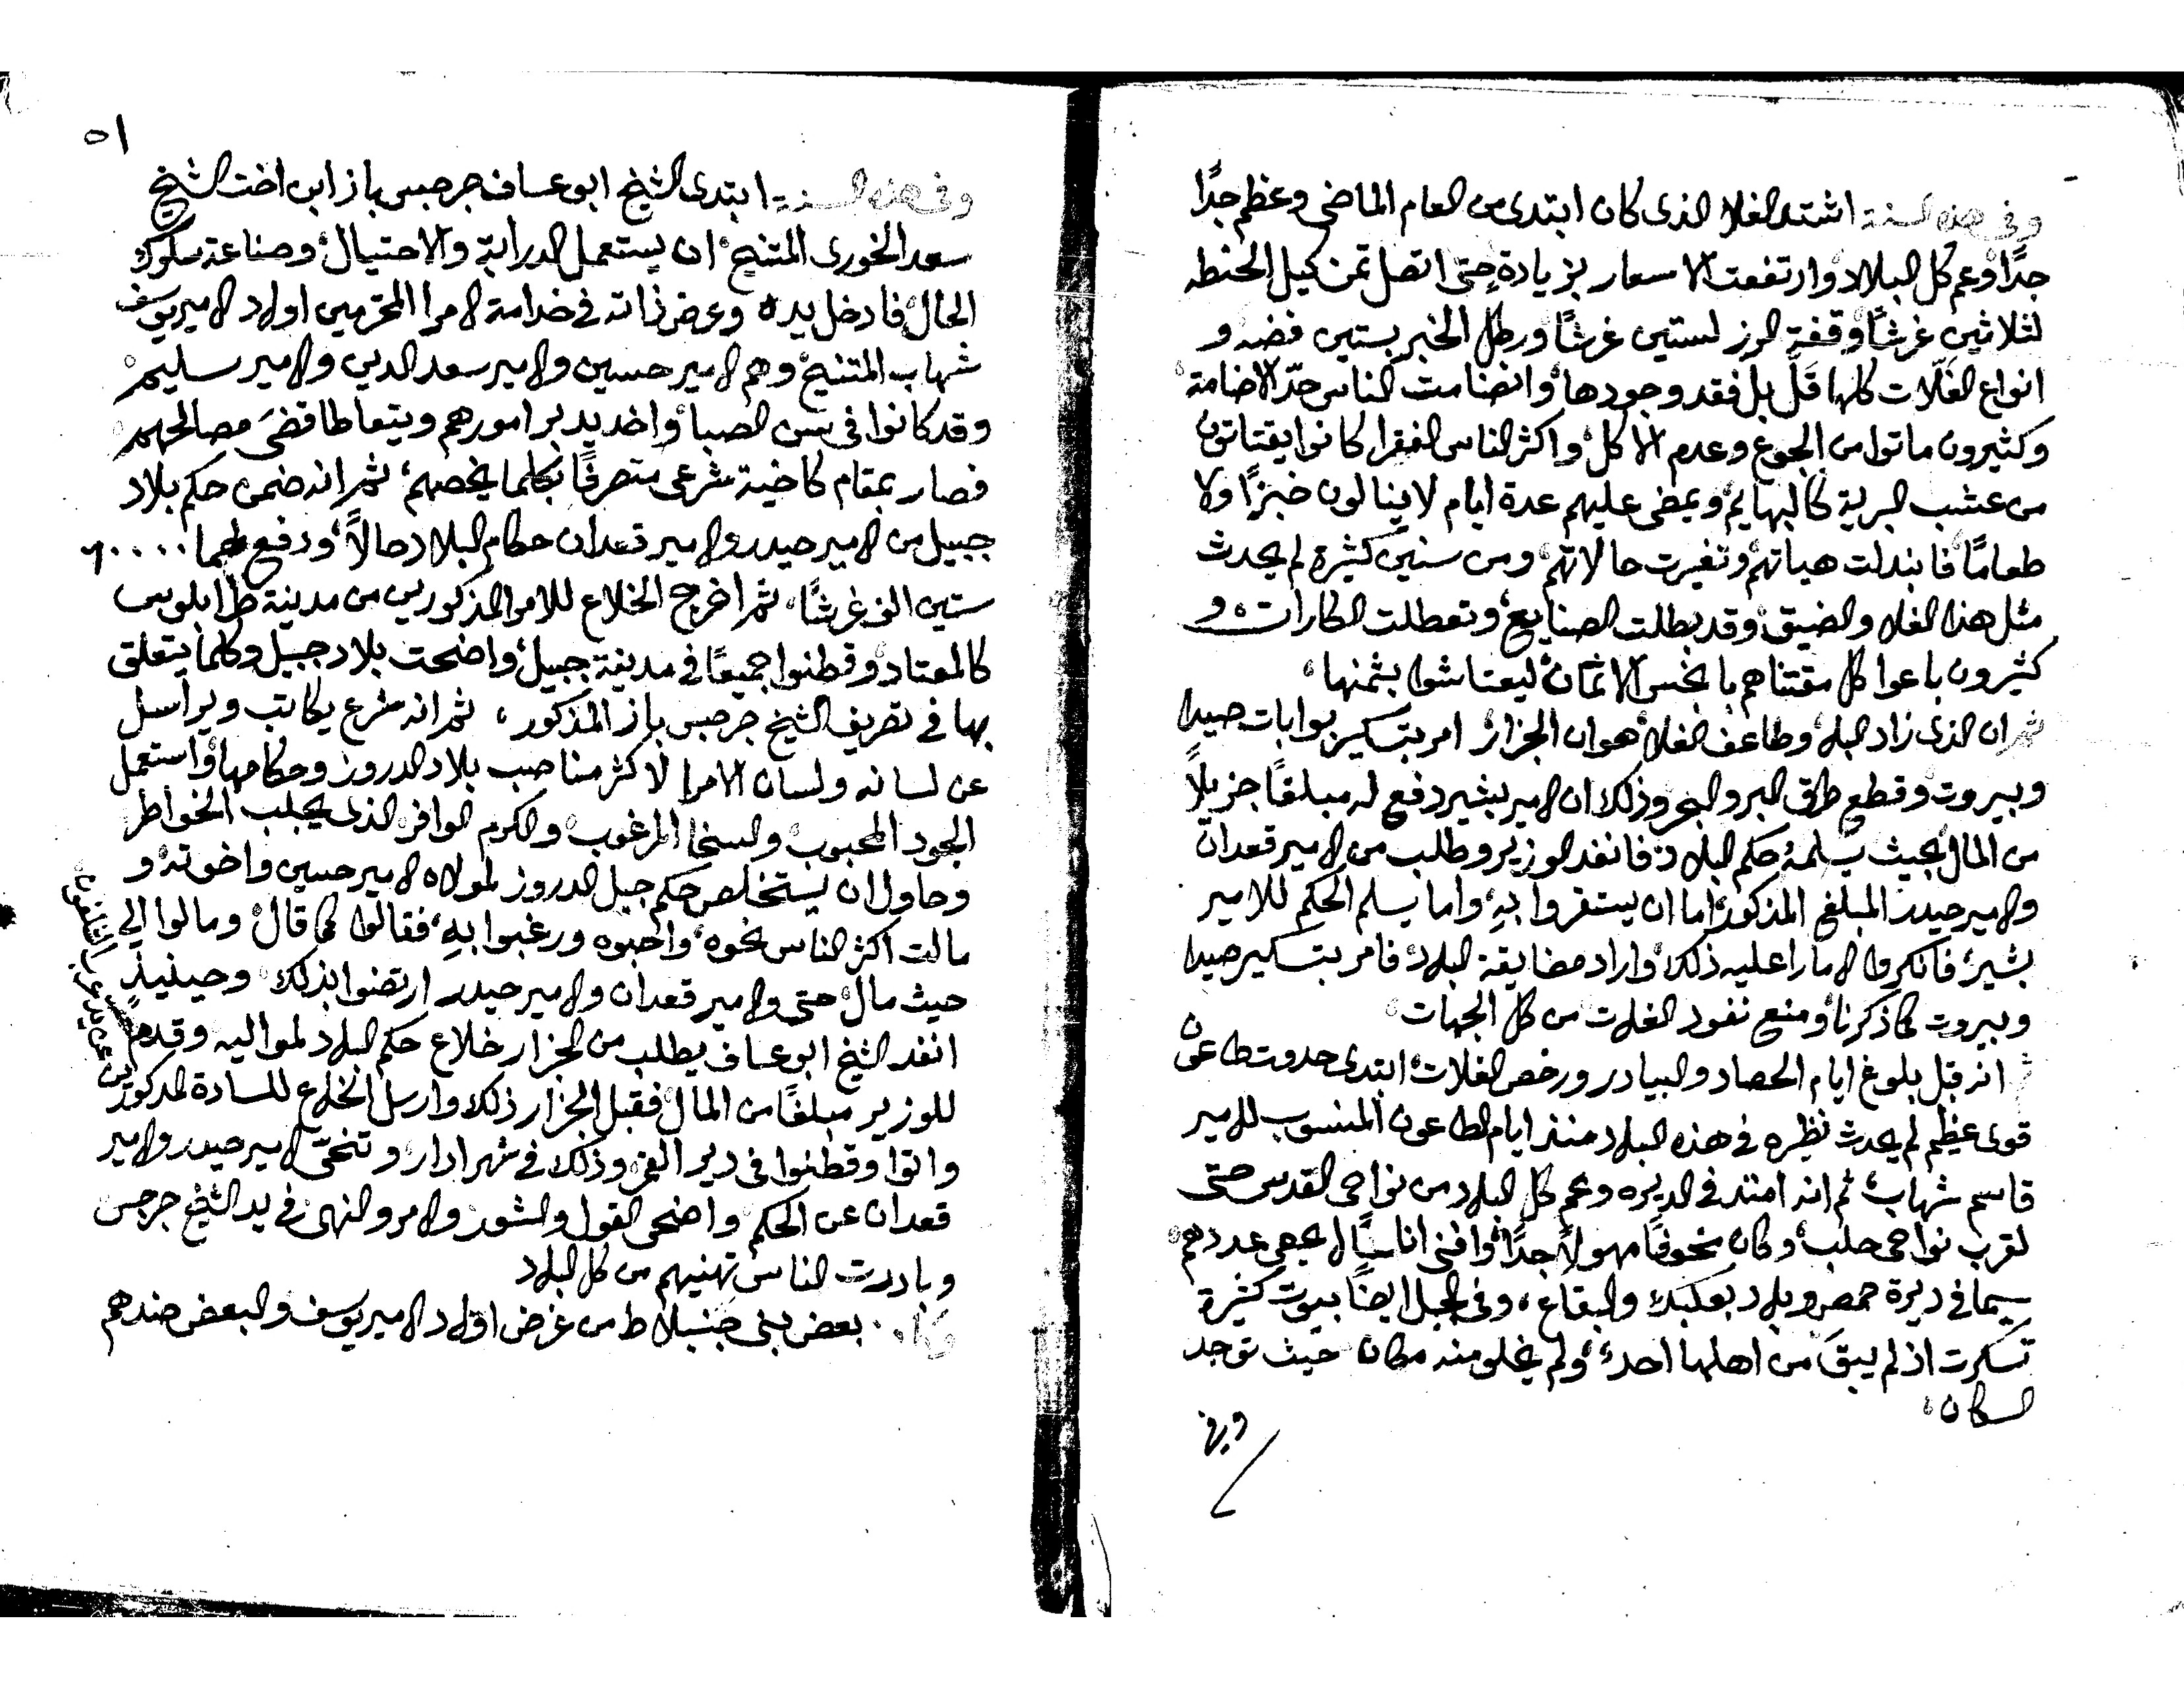 وفي هذه السنة اشتد الغلا الذى كان ابتدى من العام الماضى وعظم جدًا
جدًا وعم كل البلاد وارتفعت الاسعار بزيادة حتى اتصل ثمن كيل الحنطه
لثلاثين غرشًا وقفة الرز لستين غرشًا ورطل الخبز بستين فضه و
انواع الغلّات كلها قَلَّ بل فقد وجودها، وانضامت الناس حدّ الاضامة
وكثيرون ماتوا من الجوع وعدم الاكل، واكثر الناس الفقرا كانوا يقتاتون
من عشب البرية كالبهايم، ويمضى عليهم عدة ايام لا ينالون خبزًا ولا
طعامًا فابتدلت هياتهم، وتغيرت حالاتهم، ومن سنين كثيرة لم يحدث
مثل هذا الغلا والضيق، وقد بطلت الصنايع، وتعطلت الكارات، و
كثيرون باعوا كل مقتناهم بابخس الاثمان، ليعتاشوا بثمنها،
ثم ان الذى زاد البلا، وطاعف الغلا، هو ان الجزار، امر بتسكير بوابات صيدا
وبيروت، وقطع طرق البر والبحر وذلك ان الامير بشير دفع له مبلغًا جزيلاً
من المال بحيث يسلمهُ حكم البلاد، فانفد الوزير وطلب من الامير قعدان
والامير حيدر المبلغ المذكور، اما ان يستقروا بهِ، واما يسلم الحكم للامير
بشير، فانكروا الامارا عليه ذلك، واراد مضايقة البلاد، فامر بتسكير صيدا
وبيروت كما ذكرنا، ومنع نفود الغلات من كل الجهات،
ثم انه قبل بلوغ ايام الحصاد والبيادر ورخص الغلات، ابتدى حدوث طاعون
قوى عظيم لم يحدث نظيره في هذه البلاد منذ ايام الطاعون المنسوب للامير
قاسم شهاب، ثم انه امتد في الديره وعم كل البلاد من نواحى القدس حتى
لقرب نواحى حلب، وكان مخوفًا مهولاً جدًا، وافنى اناسًا لا يحصى عددهم،
سيما في ديرة حمص وبلاد بعلبك والبقاع، وفي الجبل ايضًا بيوت كثيرة
تسكرت اذ لم يبقَ من اهلها احد، ولم يخلو منه مكان حيث توجد
السكان،
وفي
٥١
وفي هذه السنة ابتدى الشيخ ابو عساف جرجس باز ابن اخت الشيخ
سعد الخورى المتنيح، ان يستعمل الدراية والاحتيال، وصناعة سلوك
الحال، فادخل يده وعرض ذاته في خدامة الامرا المحترمين اولاد الامير يوسف
شهاب المتنيح، وهم الامير حسين والامير سعد الدين والامير سليم
وقد كانوا في سن الصبا، واخد يدبر امورهم ويتعاطا قضىَ مصالحهم
فصار بمقام كاخية شرعى متصرفًا بكلما يخصهم، ثم انه ضمن حكم بلاد
جبيل من الامير حيدر والامير قعدان حكام البلاد حالاً، ودفع لهما ٦٠٠٠٠
ستين الف غرشًا، ثم اخرج الخلاع للامرا المذكورين من مدينة طرابلوس
كالمعتاد، وقطنوا جميعًا في مدينة جبيل، واضحت بلاد جبيل وكلما يتعلق
بها في تصريف الشيخ جرجس باز المذكور، ثم انه شرع يكاتب ويراسل
عن لسانه ولسان الامرا لاكثر مناصب بلاد الدروز وحكامها، واستعمل
الجود المحبوب، والسخا المرغوب، والكرم الوافر، الذى يجلب الخواطر
وحاول ان يستخلص حكم جبل الدروز لمولاه الامير حسين واخوته، و
مالت اكثر الناس نحوه، واحبوه ورغبوا بهِ، فقالوا كما قال، ومالوا الى
حيث مال، حتى والامير قعدان والامير حيدر ارتضوا بذلك، وحينيذٍ
انفد الشيخ ابو عساف يطلب من الجزار خلاع حكم البلاد لمواليه وقدم
للوزير مبلغًا من المال، فقبل الجزار ذلك، وارسل الخلاع للسادة المذكورين
واتوا وقطنوا في دير القمر، وذلك في شهر ادار، وتنحّى الامير حيدر والامير
قعدان عن الحكم، واضحى القول والشور والامر والنهى في يد الشيخ جرجس
وبادرت الناس تهنيهم من كل البلاد
وكان بعض بنى جنبلاط من غرض اولاد الامير يوسف والبعض ضدهم